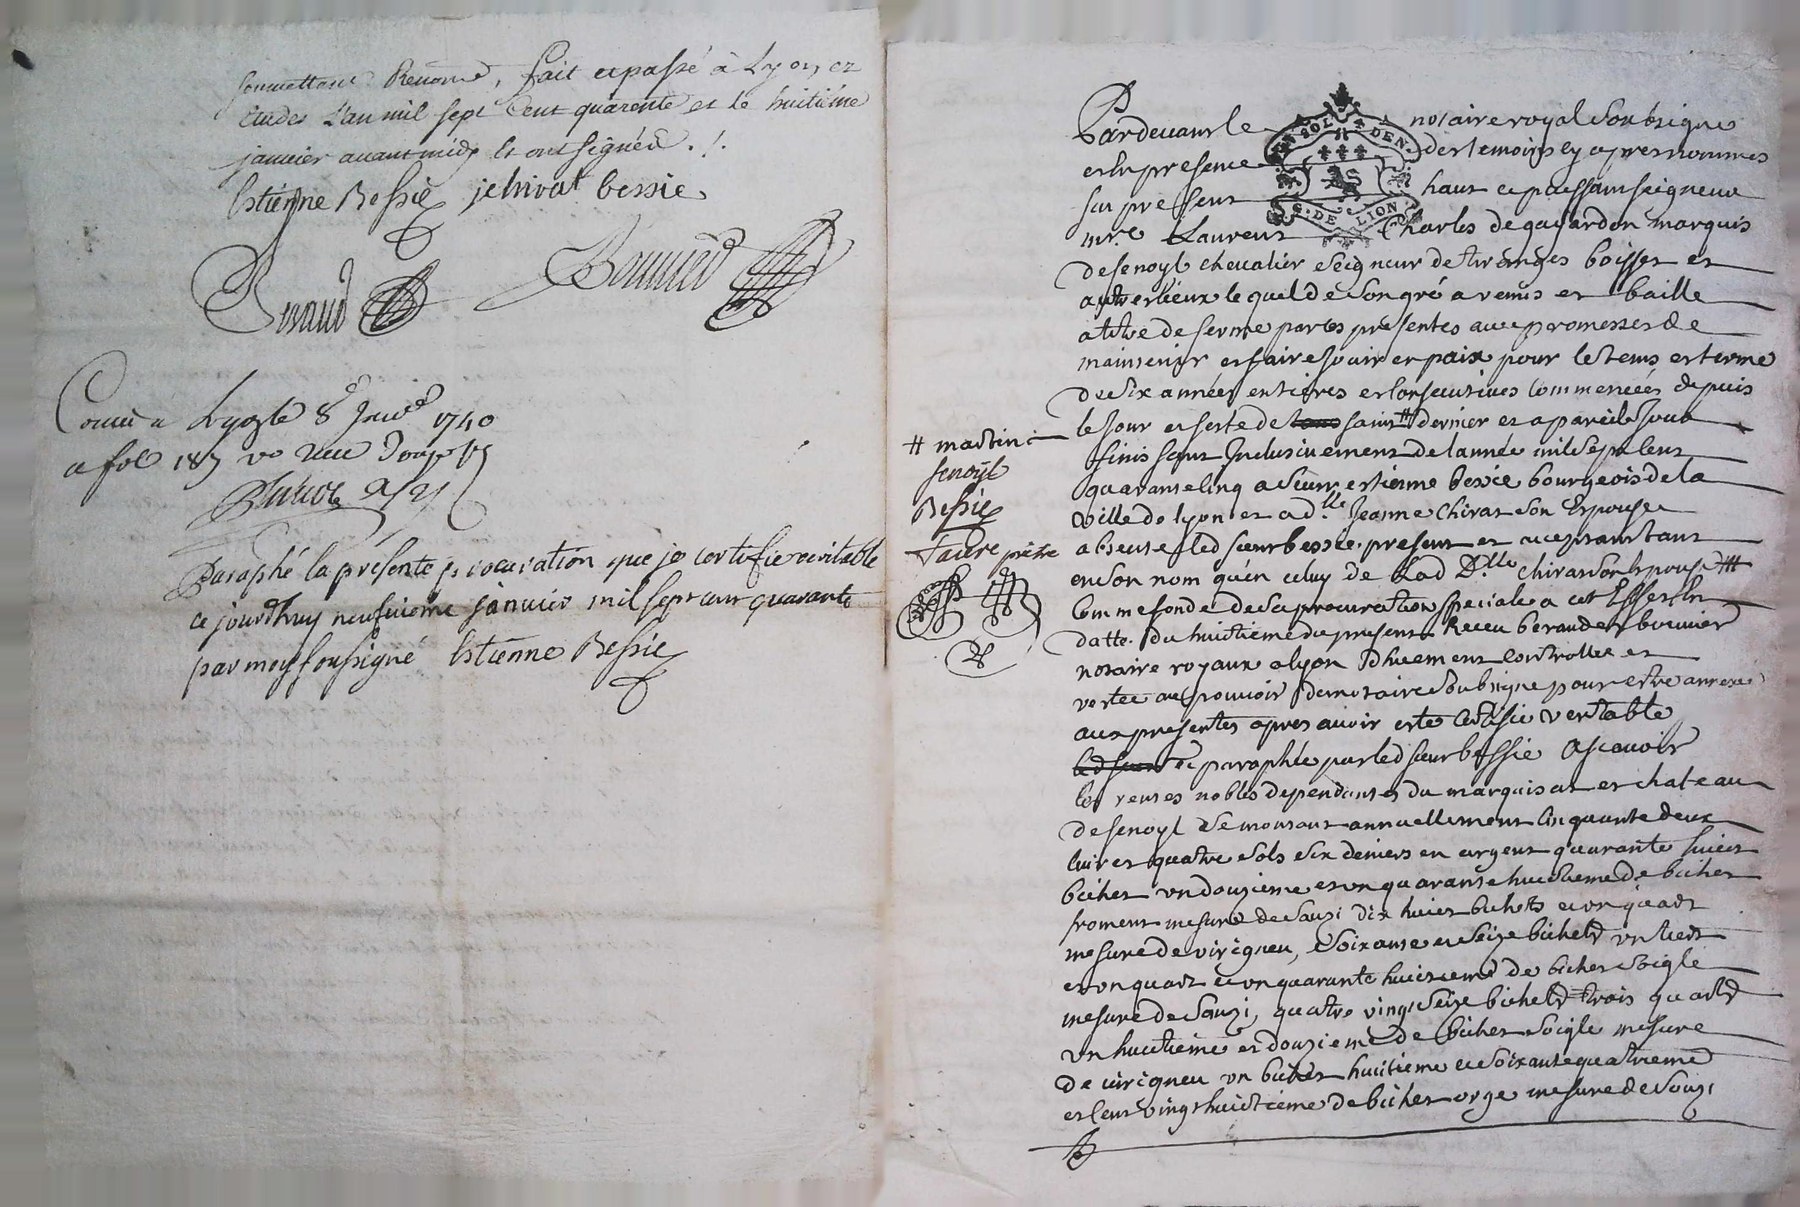 soumettant Renonc, fait et passé à Lyon, ez
Etudes L'an mil sept Cent quarente et le huitiéme
janvier avant midy et ont signéz ./.
Estiénne Bessie jehivat bessie
Beraud Bounied
Con.le a Lyon le 8.e Janv. 1740
a fol 187 vo Reçu Douze s
Paraphé la présente procuration que je certifie veritable
ce jourd'huy neufuieme janvier mil sept cent quarante
par moy soussigné Estienne Bessie
Pardevant le notaire royal Soubsigne
et En presence des temoins cy apres nommes
fut present haut et puissant seigneur
mre. Laurent Charles de gasardon marquis
de senoyl chevalier seigneur de tiranges boisset et
autres lieux lequel de son gré a remis et baille
a titre de ferme par les presentes avec promesses de
maintenir et faire jouir en paix pour le tems et terme
de six années entieres et consecutives Commencées depuis
le jour et feste de saint # dernier et a pareil jour
finis sant Inclusivement de l'année mil sept cent
quarante cinq a sieur estienne bessie bourgeois de la
ville de lyon et a d.lle Jeanne Chirat son Espouse
absente led sieur bessie present et acceptant tant
en son nom qu'en celuy de Lad D.lle chirat son Epouse #
Comme fondé de sa procuration speciale a cet Effet En
datte du huitieme du present Receu beraud et bounier
notaire royaux a lyon dhuement controllée et
restee au pouvoir du notaire soubsigne pour estre annexe
aux presentes apres avoir este certifie veritable
led sieur et paraphée par led sieur bessie Ascavoir
les rentes nobles dependantes du marquisat et chateau
de senoyl se montant annuellement Cinquante deux
livres quatre sols six deniers en argent quarante huict
bichet un douzieme et un quarante huictieme de bichet
froment mesure de Sauzi dix huict bichets et un quart
mesure de virigneu, soixante et seize bichets un tiers
et un quart et un quarante huictieme de bichet soigle
mesure de Sauzi, quatre vingt seize bichets trois quarts
un huictieme et douzieme de bichet soigle mesure
de virigneu un bichet huitieme et soixante quatrieme
et cent vingt huictieme de bichet orge mesure de Souzi
# martin
senoÿl
Bessie
faure prêtre
GEN. SOL. DEN.
G. DE LION